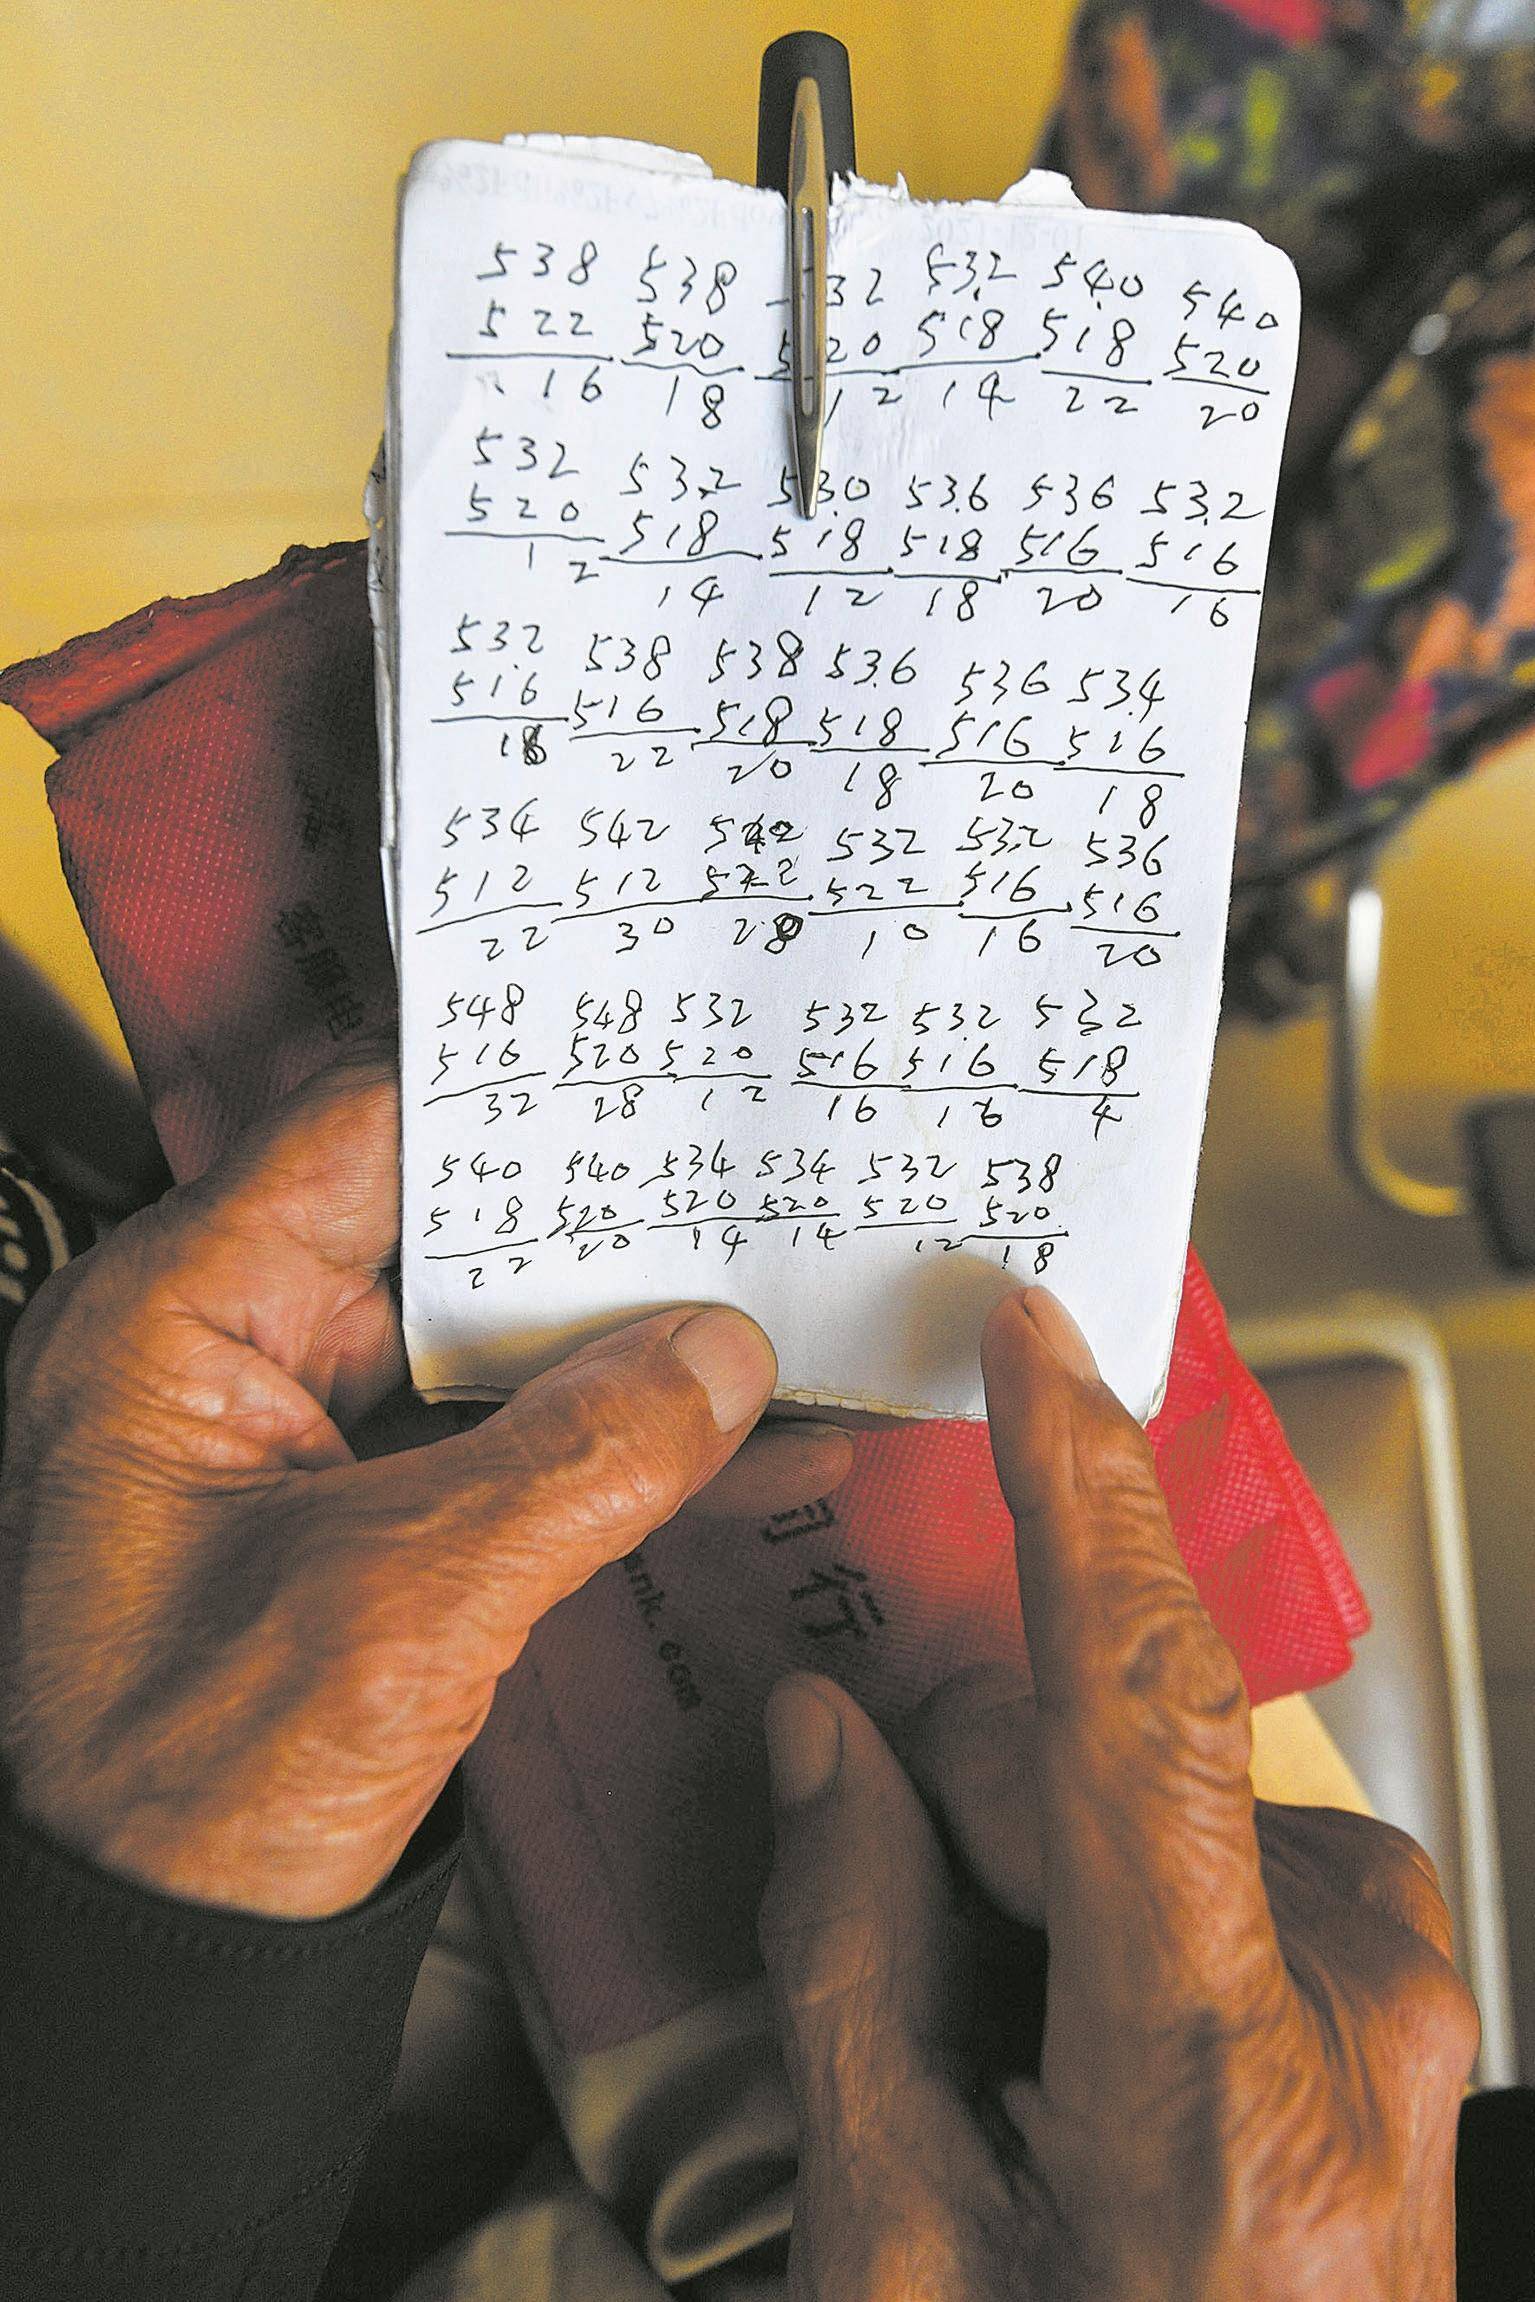 2021-12-01
538 538 32 53.2 54.0 540
522 520 20 518 518 520
16 18 12 14 22 20
532 53.2 53.0 53.6 536 53.2
520 518 518 518 516 516
12 14 12 18 20 16
532 538 538 53.6 536 53.4
516 516 518 518 516 516
18 22 20 18 20 18
534 542 532 53.2 536
512 512 522 516 516
22 30 28 10 16 20
548 548 532 532 532 532
516 520 520 516 516 518
32 28 12 16 16 4
540 540 534 534 532 538
518 520 520 520 520 520
22 20 14 14 12 18
行
ank.com